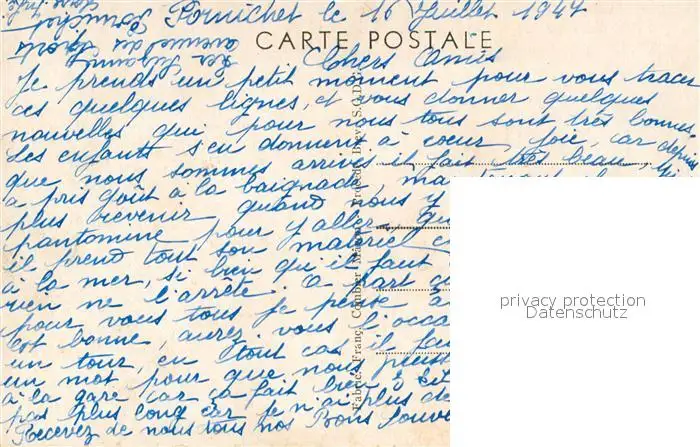 Pornichet le 16 Juillet 1947
CARTE POSTALE
Chers Amis
Je prends un petit moment pour vous tracer
ces quelques lignes, et vous donner quelques
nouvelles qui pour nous tous sont très bonnes.
Les enfants s'en donnent à coeur joie, car depuis
que nous sommes arrivés il fait très beau,
a pris goût à la baignade,
plus revenir, quand nous y
pantomine pour y aller,
il prend tout son matériel
à la mer, si bien qu'il faut
rien ne l'arrête. a part
pour vous tous je pense
est bonne, aurez vous l'occa
un tour, en tout cas il fau
un mot pour que nous puiss
à la gare car ça fait bien
pas plus long car je n'ai plus de
Recevez de nous tous nos Bons Souve
privacy protection
Datenschutz